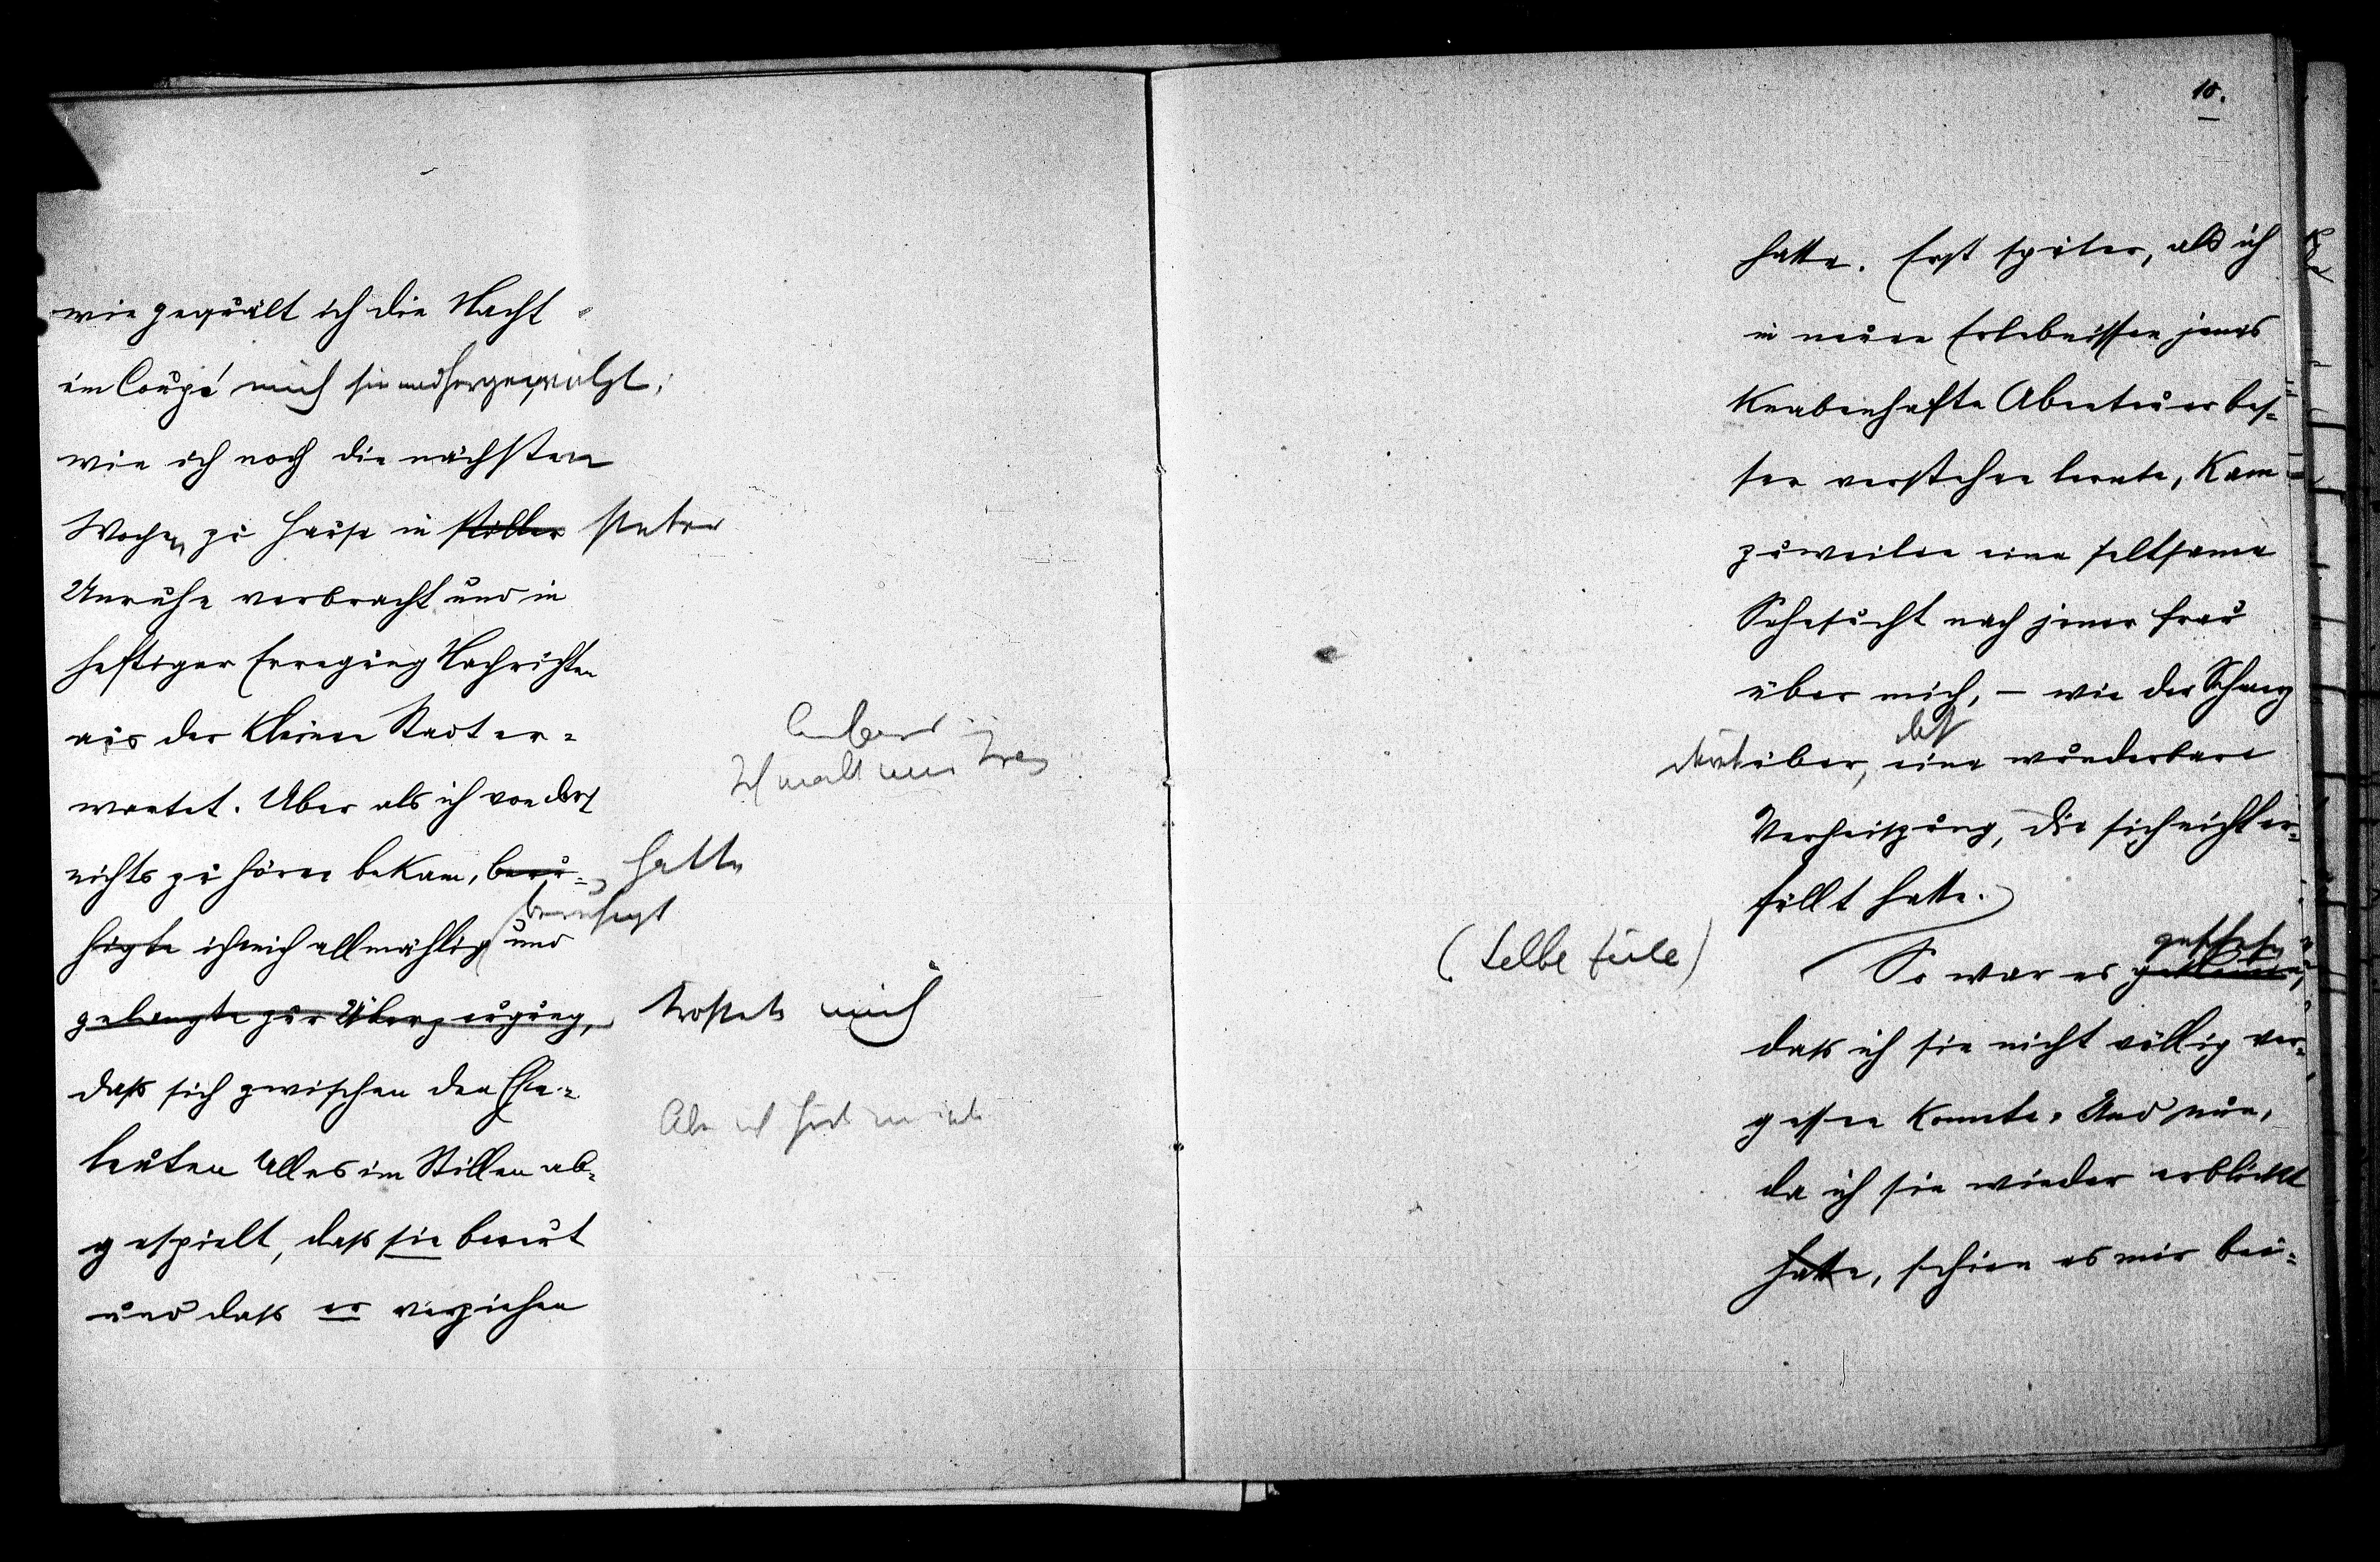 wie gequält ich die Nacht
im Coupé mich hin und hergewälzt;
wie ich noch die nächsten
Wochen zu Hause in stiller steter
Unruhe verbracht und in
heftiger Erregung Nachrichten
aus der kleinen Stadt er-
wartet. Aber als ich von dort
nichts zu hören bekam, beru- hatte
beruhigt
higte ich mich allmählig und
gelangte zur Überzeugung, tröstete mich
daß sich zwischen den Ehe-
leuten Alles im Stillen ab-
gespielt, daß sie bereut
und daß er verziehen
10.
hatte. Erst später, als ich
in neuen Erlebnissen jenes
knabenhafte Abenteuer bes-
ser verstehen lernte, kam
zuweilen eine seltsame
Sehnsucht nach jener Frau
über mich, – wie der Schmerz
darüber, eine wunderbare
Verheißung, die sich nicht er-
füllt hatte.
(selbe Zeile)
geschehen
So war es
daß ich sie nicht völlig ver-
gessen konnte. Und nun,
da ich sie wieder erblickt
hatte, schien es mir bei-